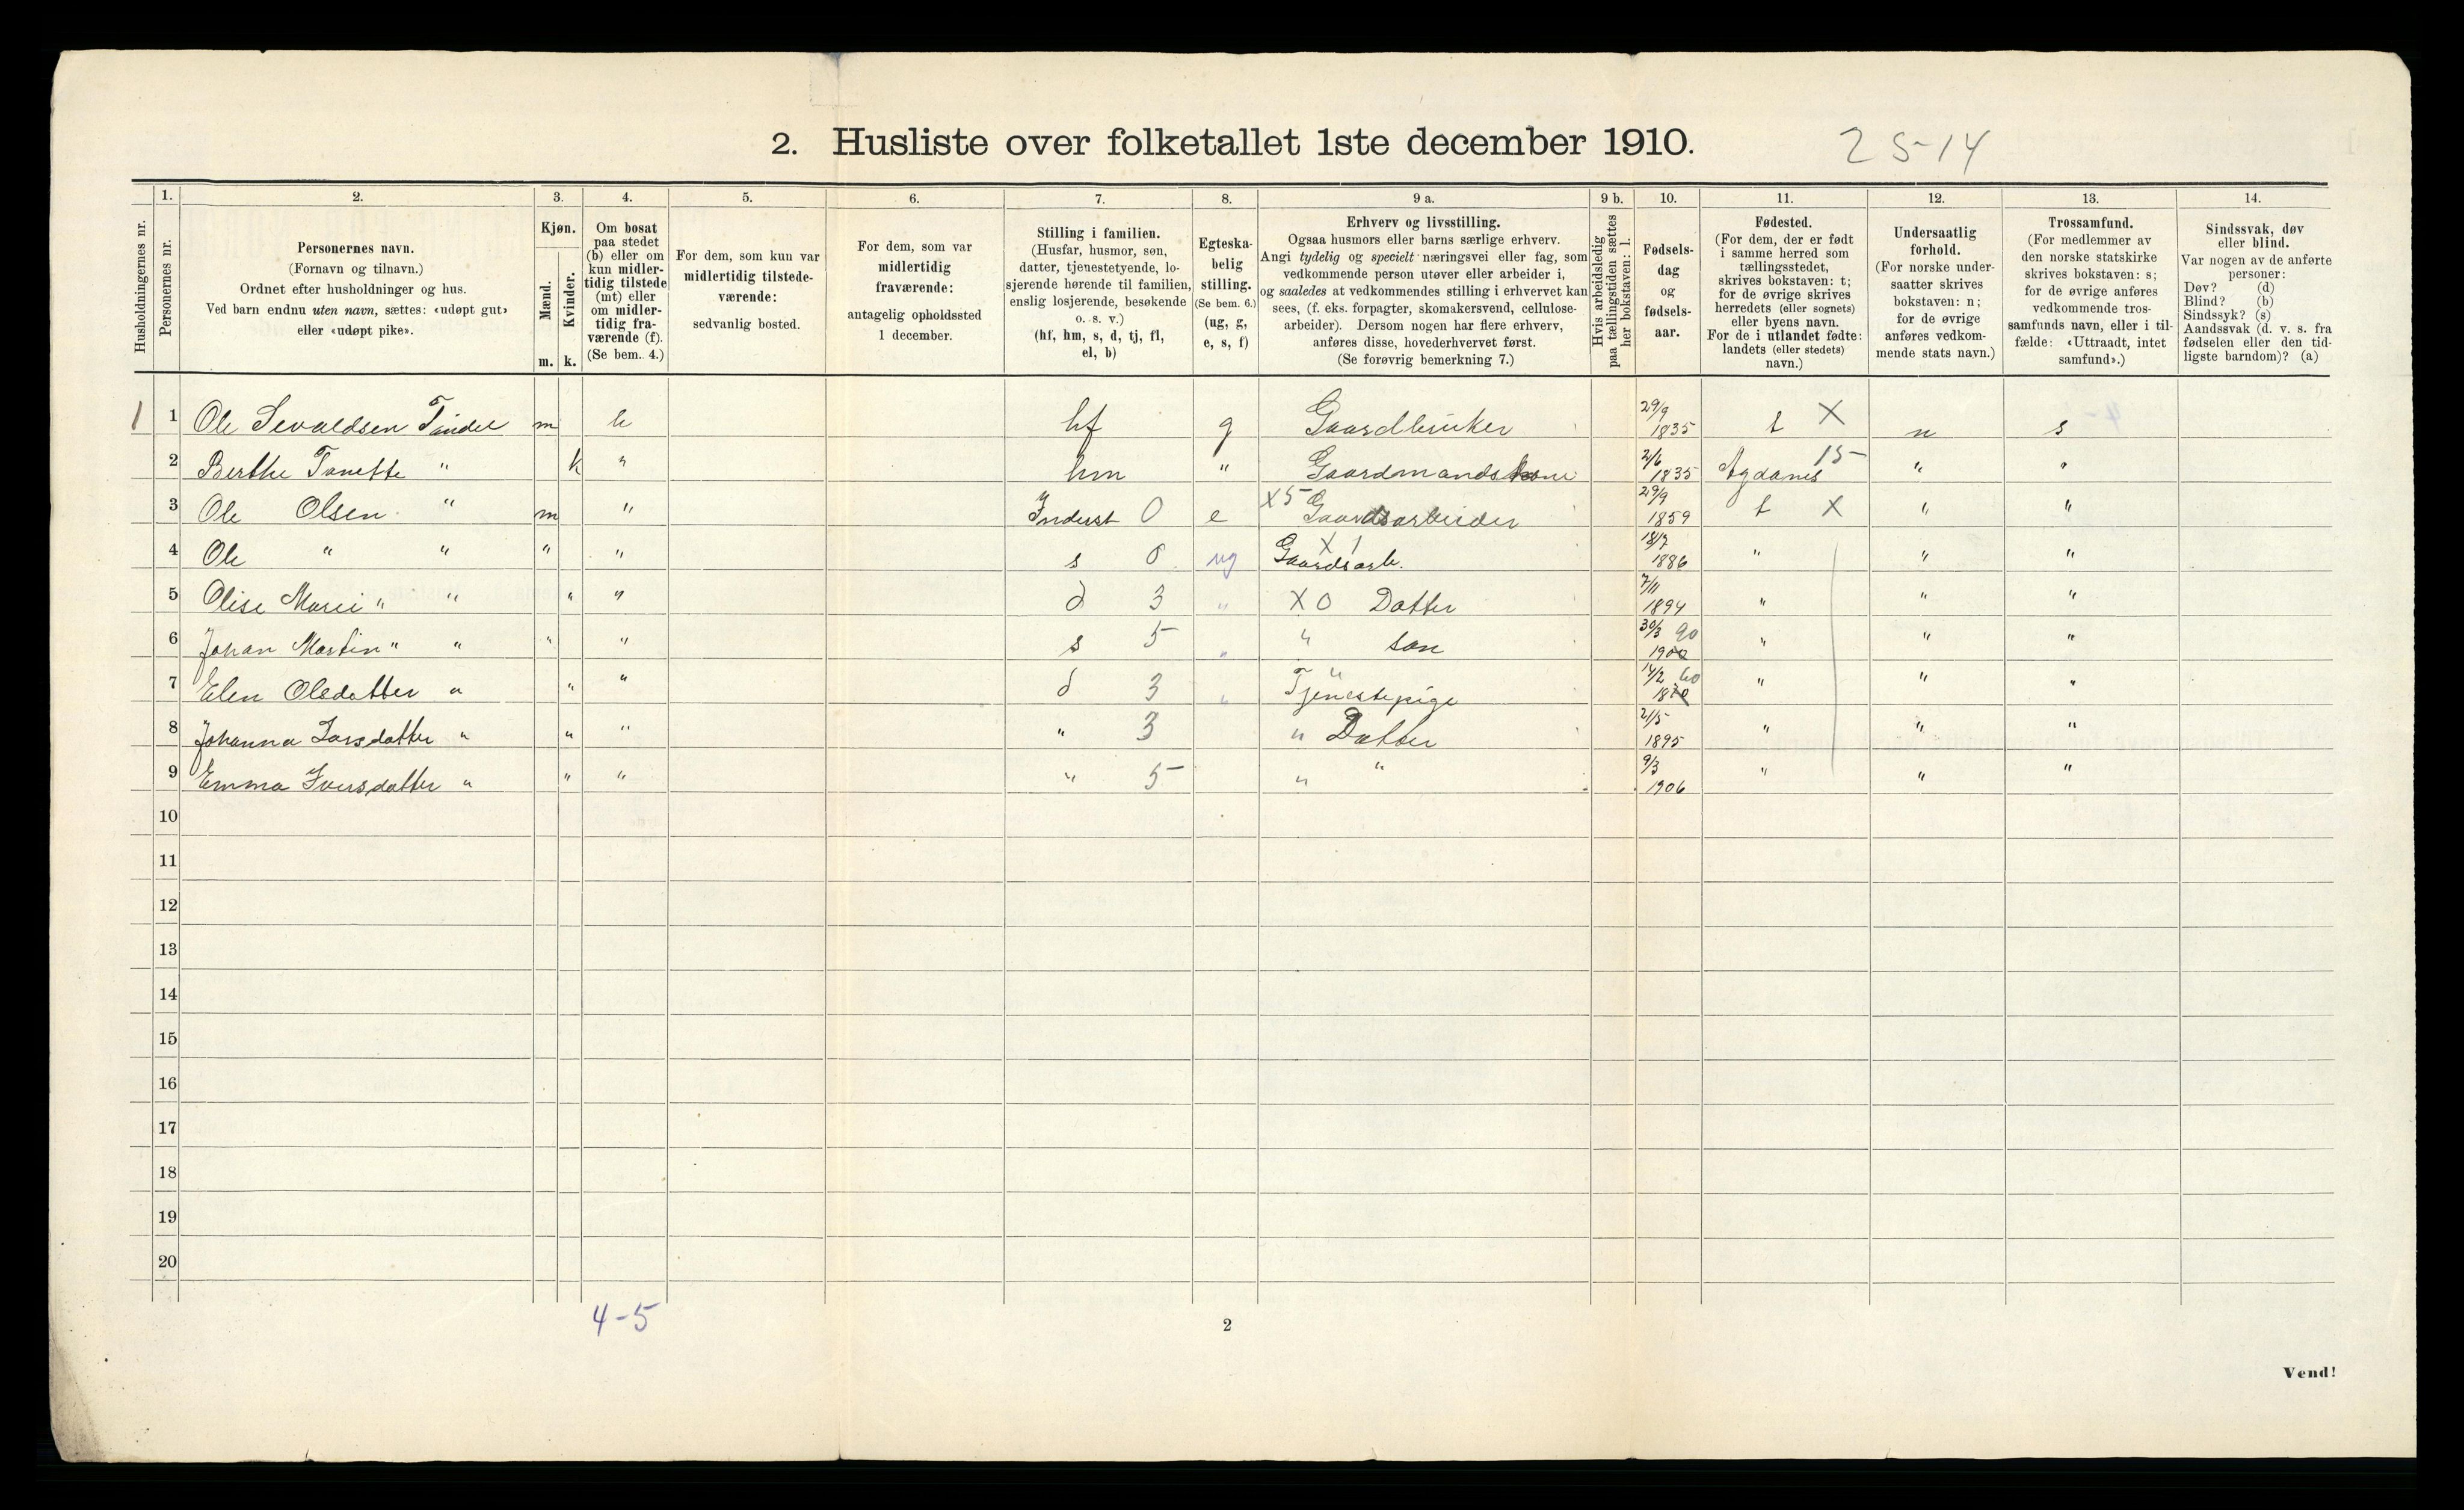 2. Husliste over folketallet 1ste december 1910. 25-14
1. 2. 3. 4. 5. 6. 7. 8. 9 a. 9 b. 10. 11. 12. 13. 14.
Husholdningernes nr.
Personernes nr.
Personernes navn.
(Fornavn og tilnavn.)
Ordnet efter husholdninger og hus.
Ved barn endnu uten navn, sættes: «udøpt gut»
eller «udøpt pike».
Kjøn.
Mænd. Kvinder.
m. k.
Om bosat
paa stedet
(b) eller om
kun midler-
tidig tilstede
(mt) eller
om midler-
tidig fra-
værende (f).
(Se bem. 4.)
For dem, som kun var
midlertidig tilstede-
værende:
sedvanlig bosted.
For dem, som var
midlertidig
fraværende:
antagelig opholdssted
1 december.
Stilling i familien.
(Husfar, husmor, søn,
datter, tjenestetyende, lo-
sjerende hørende til familien,
enslig losjerende, besøkende
o. s. v.)
(hf, hm, s, d, tj, fl,
el, b)
Egteska-
belig
stilling.
(Se bem. 6.)
(ug, g,
e, s, f)
Erhverv og livsstilling.
Ogsaa husmors eller barns særlige erhverv.
Angi tydelig og specielt næringsvei eller fag, som
vedkommende person utøver eller arbeider i,
og saaledes at vedkommendes stilling i erhvervet kan
sees, (f. eks. forpagter, skomakersvend, cellulose-
arbeider). Dersom nogen har flere erhverv,
anføres disse, hovederhvervet først.
(Se forøvrig bemerkning 7.)
Hvis arbeidsledig
paa tællingstiden sættes
her bokstaven: l.
Fødsels-
dag
og
fødsels-
aar.
Fødested.
(For dem, der er født
i samme herred som
tællingsstedet,
skrives bokstaven: t;
for de øvrige skrives
herredets (eller sognets)
eller byens navn.
For de i utlandet fødte:
landets (eller stedets)
navn.)
Undersaatlig
forhold.
(For norske under-
saatter skrives
bokstaven: n;
for de øvrige
anføres vedkom-
mende stats navn.)
Trossamfund.
(For medlemmer av
den norske statskirke
skrives bokstaven: s;
for de øvrige anføres
vedkommende tros-
samfunds navn, eller i til-
fælde: «Uttraadt, intet
samfund».)
Sindssvak, døv
eller blind.
Var nogen av de anførte
personer:
Døv? (d)
Blind? (b)
Sindssyk? (s)
Aandssvak (d. v. s. fra
fødselen eller den tid-
ligste barndom)? (a)
1 1 Ole Sevaldsen Tindel m b hf g Gaardbruker 29/9 1835 t X n s
2 Berthe Tonette " k " hm " Gaardmandskone 2/6 1835 Agdanes 15 " "
3 Ole Olsen " m " Inderst 0 e X5 Gaardsarbeider 29/9 1859 t X " "
4 Ole " " " " s 0 ug X 1 Gaardsarb. 18/7 1886 " " "
5 Olise Marii " " " " d 3 " X 0 Datter 7/11 1894 " " "
6 Johan Martin " " " " s 5 " " søn 30/3 1900 90 " " "
7 Elen Olsdatter " " " d 3 " " Tjenestepige 14/2 1870 60 " " "
8 Johanna Larsdatter " " " " 3 " Datter 21/5 1895 " " "
9 Emma Iversdatter " " " " 5 " " 9/3 1906 " " "
10
11
12
13
14
15
16
17
18
19
20
4-5
2
Vend!